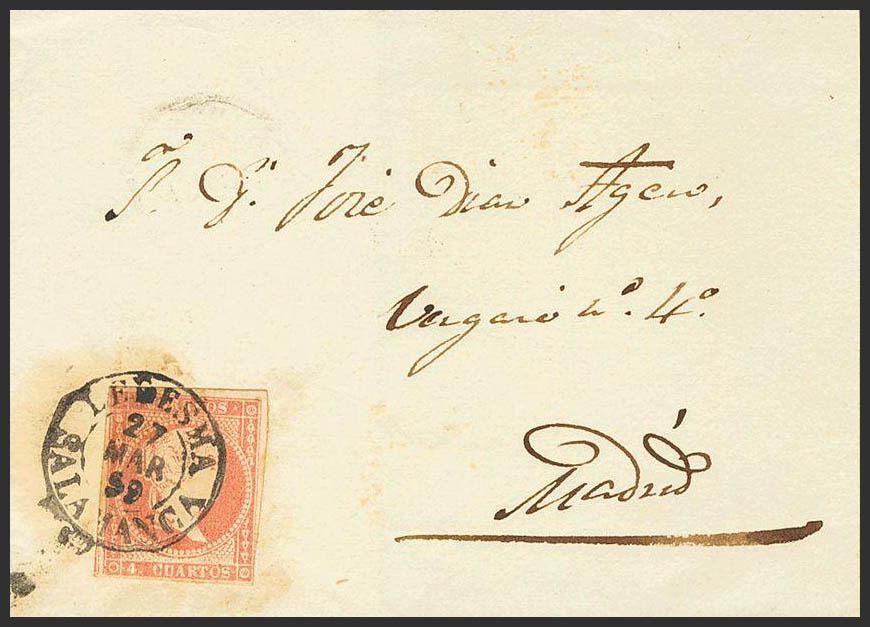 S. D. José Diaz Agero,
Vergara nº. 4º.
Madrid
LEDESMA
27
MAR
59
SALAMANCA
4. CUARTOS